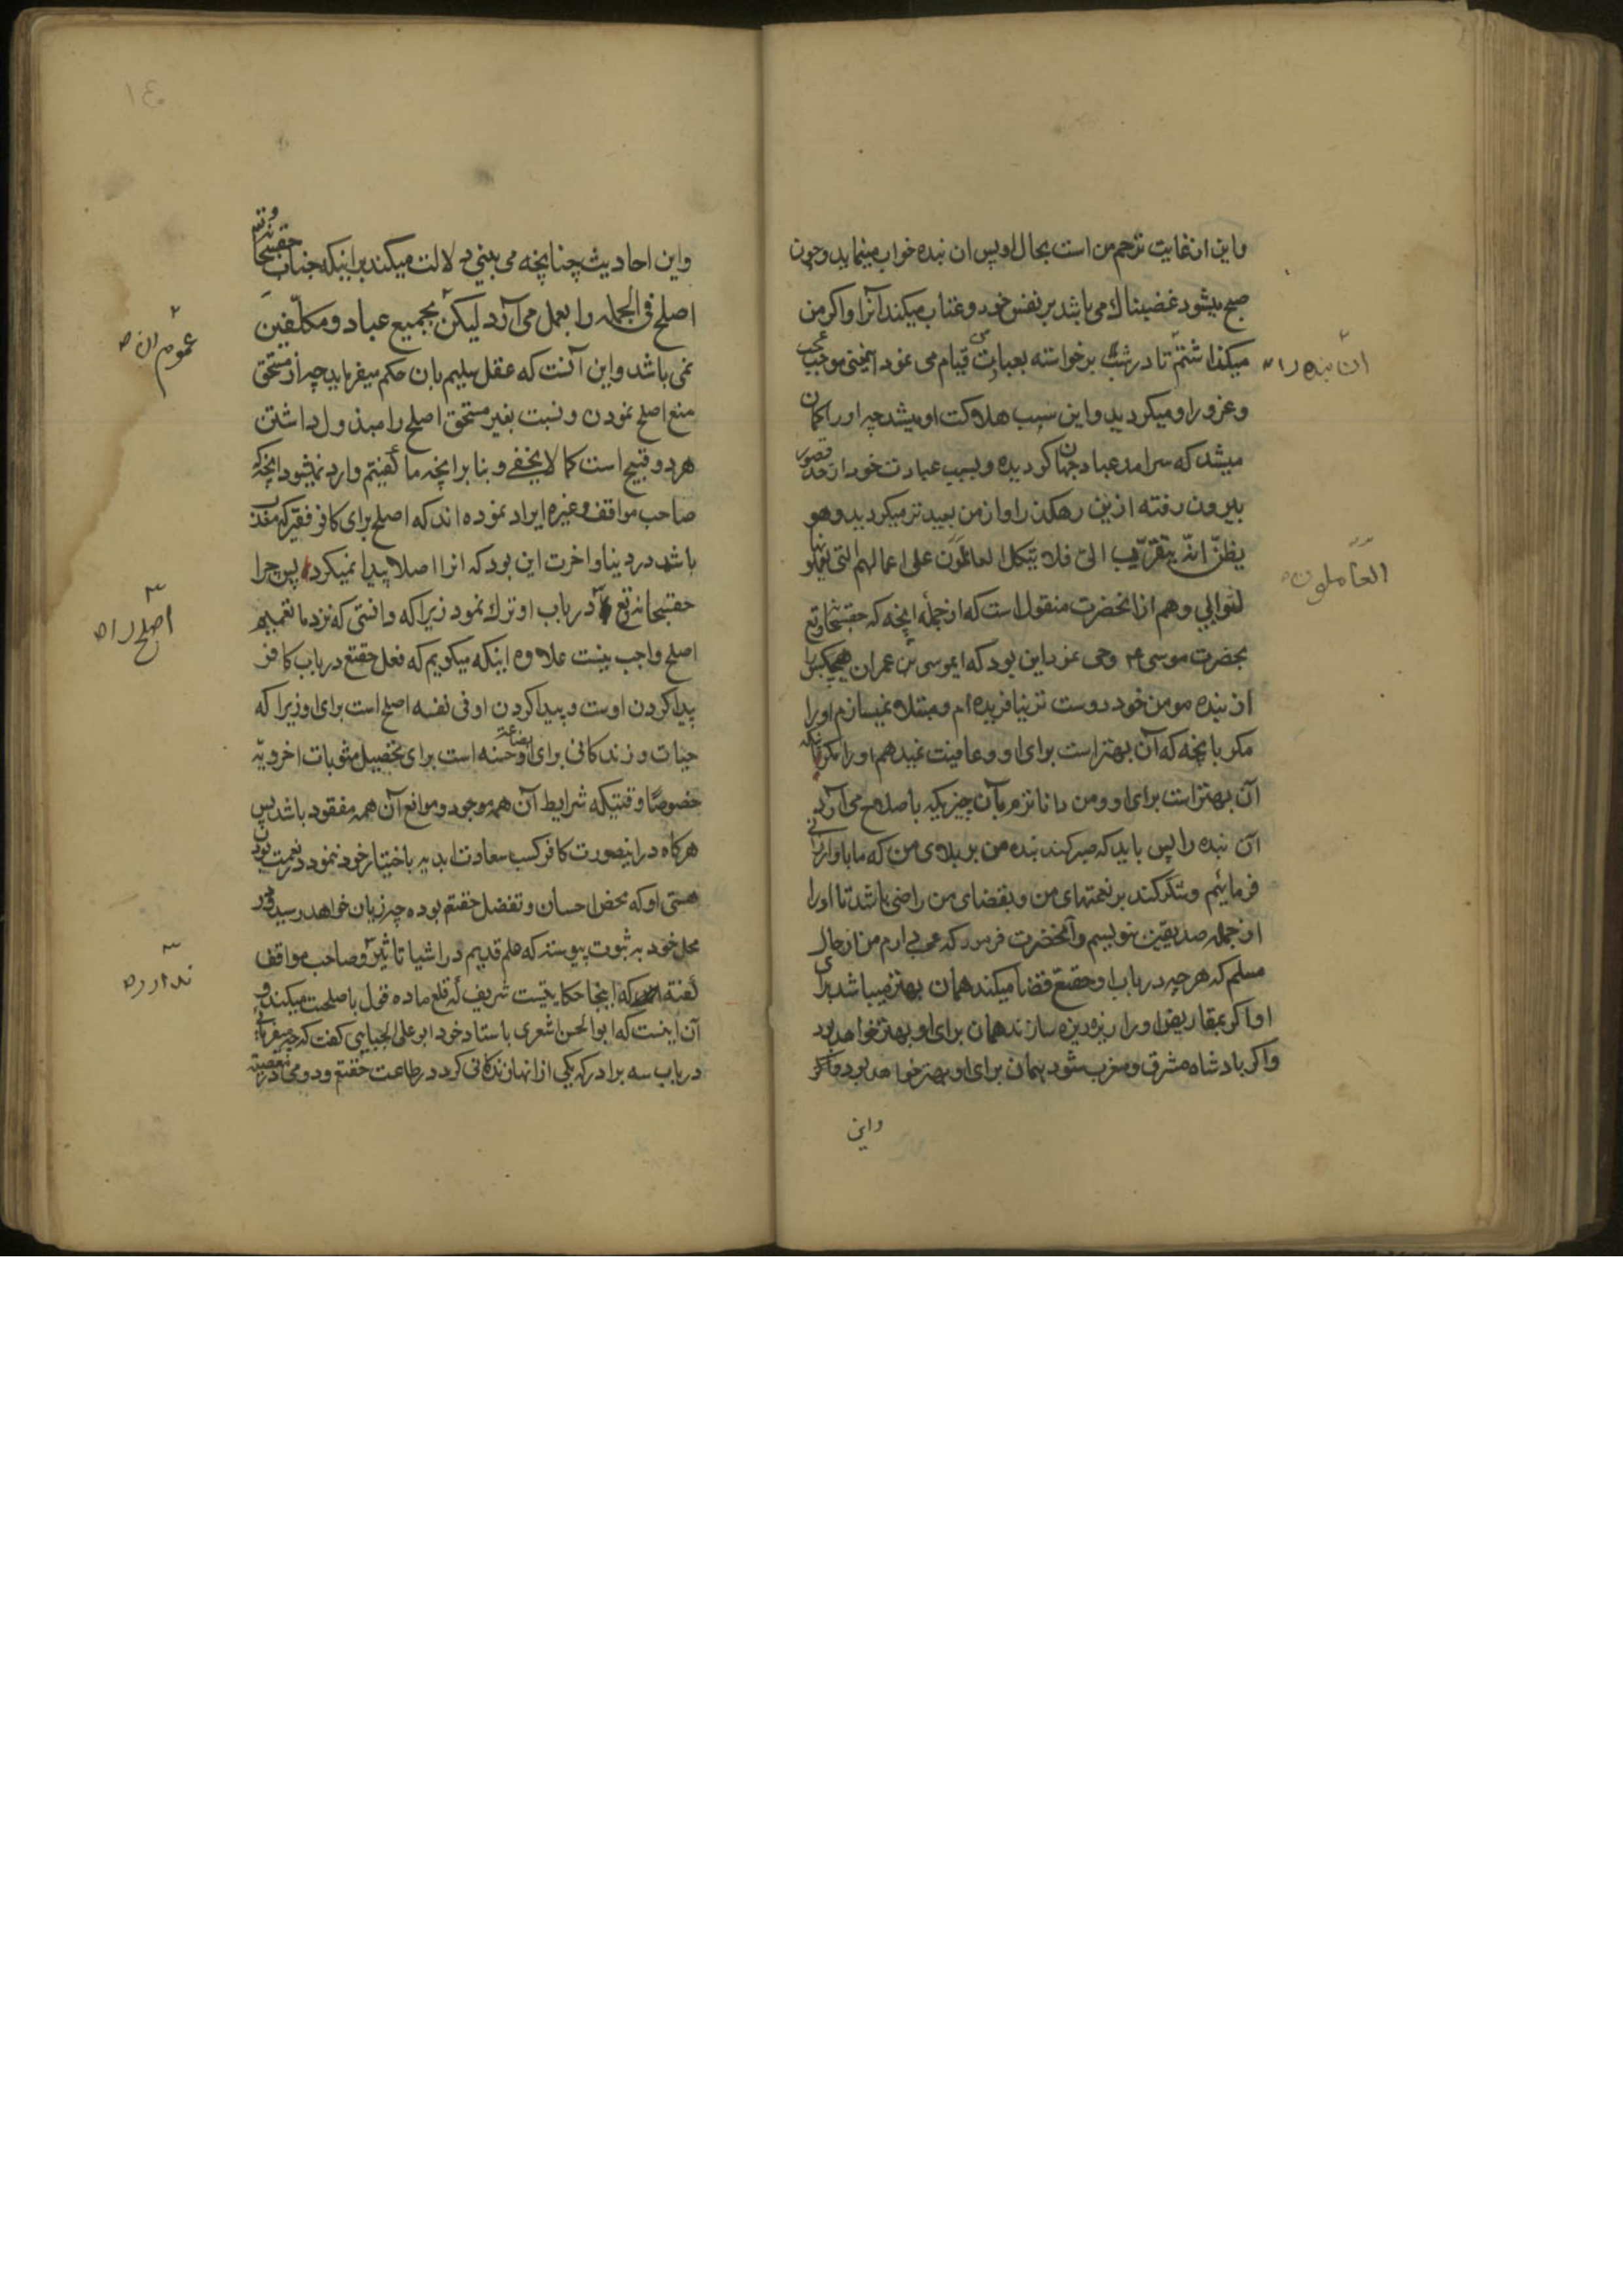 واین از غایت ترحم من است بحال او پس ان بنده خواب مینماید و چون
صبح میشود غضبناک می باشد بر نفس خود و عتاب میکند آنرا و اگر من
میکذاشتم تا در شب برخواسته بعبادت قیام می نمود اینمعنی موجب عجب
وغرور او میکردید و این سبب هلاکت او میشد چه او را کمان
میشد که سرامد عباد جهان کردیده و بسبب عبادت خود از حد قصور
بیرون رفته ازین رهکذر او از من بعید تر میکردید و هو
یظنّ انّه یتقرّب الیّ فلا یتکل العاملون علی اعمالهم التی
لثوابی و هم از انحضرت منقول است که از جمله انچه که حقسبحانه وتع
بحضرت موسی ع وحی نمود این بود که ایموسی بن عمران هیچکس را
از بنده مومن خود دوست تر نیافریده ام و مبتلا نمیسازم او را
مکر بانچه که آن بهتر است برای او و عافیت نمیدهم او را مکر بآنکه
آن بهتر است برای او و من داناترم بآن چیزیکه باصلاح می آرد
آن بنده را پس باید که صبر کند بنده من بر بلای من که ما باو ارزانی
فرمائیم و شکر کند بر نعمتهای من و بقضای من راضی باشد تا او را
از جمله صدیقین بنویسم و آنحضرت فرمود که عجب دارم من از حال
مسلم که هر چه در باب او حقتع قضا میکند همان بهتر میباشد برای
او اکر بمقاریض او را ریزه ریزه سازند همان برای او بهتر خواهد بود
و اکر بادشاه مشرق و مغرب شود همان برای او بهتر خواهد بود
واین
ان بنده را
العاملون
واین احادیث چنانچه می بینی دلالت میکند بر اینکه جناب حقسبحانه وتع
اصلح فی الجمله را بعمل می آرد لیکن بجمیع عباد و مکلّفین
نمی باشد و این آنست که عقل سلیم بان حکم میفرماید چه از مستحق
منع اصلح نمودن و نسبت بغیر مستحق اصلح را مبذول داشتن
هر دو قبیح است کما لا یخفی و بنا بر انچه ما کفتیم وارد نمیشود انچه که
صاحب مواقف وغیره ایراد نموده اند که اصلح برای کافر فقیر که معذب
باشد در دنیا و اخرت این بود که انرا اصلا پیدا نمیکرد پس چرا
حقسبحانه تع در باب او ترک نمود زیرا که دانستی که نزد ما تعمیم
اصلح واجب نیست علاوه اینکه میکویم که فعل حقتع در باب کافر
پیدا کردن اوست و پیدا کردن او فی نفسه اصلح است برای او زیرا که
حیات و زندکانی برای او بضاعة حسنه است برای تحصیل مثوبات اخرویه
خصوصًا وقتیکه شرایط آن همه موجود و موانع آن همه مفقود باشد پس
هرکاه در اینصورت کافر کسب سعادت ابدیه باختیار خود ننمود در نعمت بودن
هستی او که محض احسان و تفضل حقتع بوده چه زیان خواهد رسید و در
محل خود به ثبوت پیوسته که علم قدیم در اشیا تاثیر و صاحب مواقف
کفته که اینجا حکایتیست شریف که قلع ماده قول باصلحت میکند و
آن اینست که ابو الحسن اشعری باستاد خود ابو علی الجبایی کفت که چه میفرمائی
در باب سه برادر که یکی از انها زندکانی کرد در طاعت حقتع و دومی در معصیت
عموم ان
اصلح را
ندارد
١٤٠